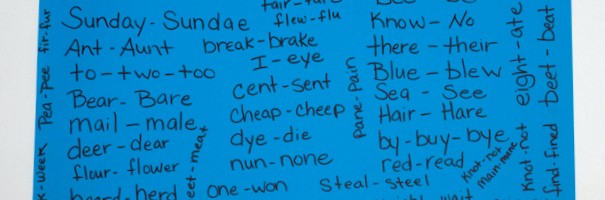 Sunday - Sundae
flew - flu
Know - No
Ant - Aunt
break - brake
there - their
I - eye
to - two - too
Blue - blew
cent - sent
Bear - Bare
Sea - See
cheap - cheep
mail - male
Hair - Hare
deer - dear
dye - die
by - buy - bye
flour - flower
nun - none
red - read
herd
one - won
Steal - steel
fir - fur
Pea - Pee
week
meat
pane - pain
eight - ate
beet - beat
Knot - not
main - mane
Knot - not
find - fined